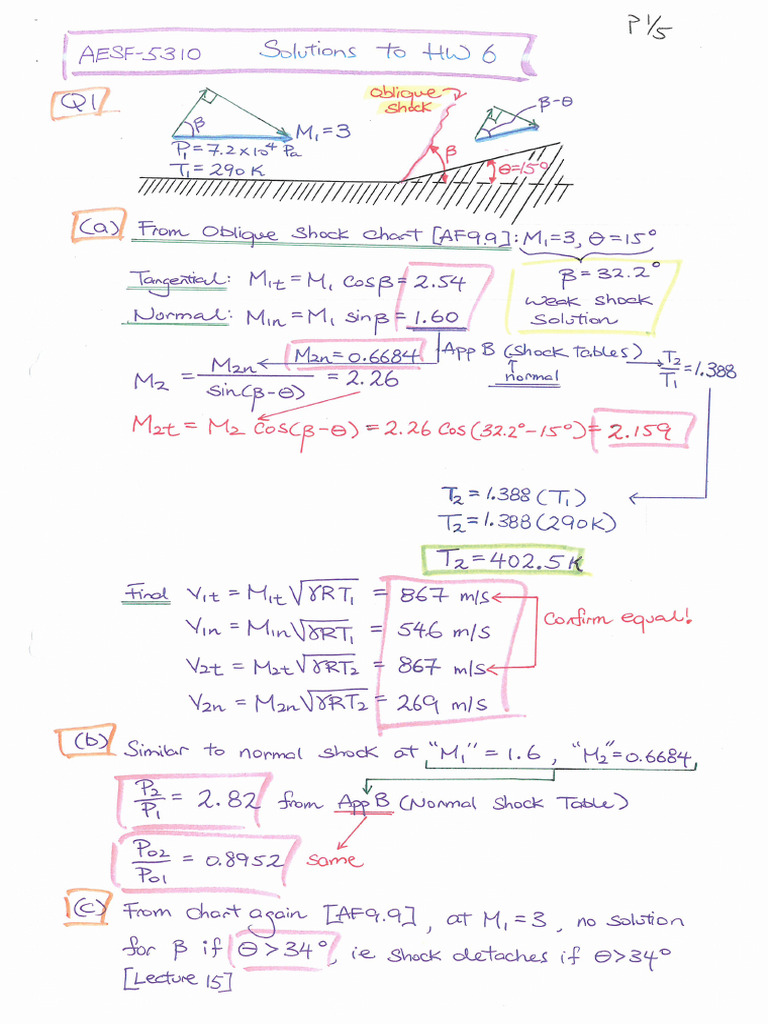 P 1/5
AESF-5310 Solutions to HW 6
Q1
oblique shock
β-θ
β
M₁=3
P₁=7.2×10⁴ Pa
T₁=290K
β
θ=15°
(a) From Oblique Shock Chart [AF9.9]: M₁=3, θ=15°
β=32.2°
weak shock
solution
Tangential: M₁t = M₁ cosβ = 2.54
Normal: M₁n = M₁ sinβ = 1.60
M₂n=0.6684 App B (shock tables) T₂/T₁ = 1.388
normal
M₂ = M₂n / sin(β-θ) = 2.26
M₂t = M₂ cos(β-θ) = 2.26 cos(32.2°-15°) = 2.159
T₂=1.388(T₁)
T₂=1.388(290K)
T₂=402.5K
Final V₁t = M₁t √γRT₁ = 867 m/s
V₁n = M₁n √γRT₁ = 546 m/s
V₂t = M₂t √γRT₂ = 867 m/s
V₂n = M₂n √γRT₂ = 269 m/s
Confirm equal!
(b) Similar to normal shock at "M₁"=1.6, "M₂"=0.6684
P₂/P₁ = 2.82 from App B (Normal Shock Table)
P₀₂/P₀₁ = 0.8952 same
(c) From chart again [AF9.9], at M₁=3, no solution
for β if θ>34°, ie shock detaches if θ>34°
[Lecture 15]